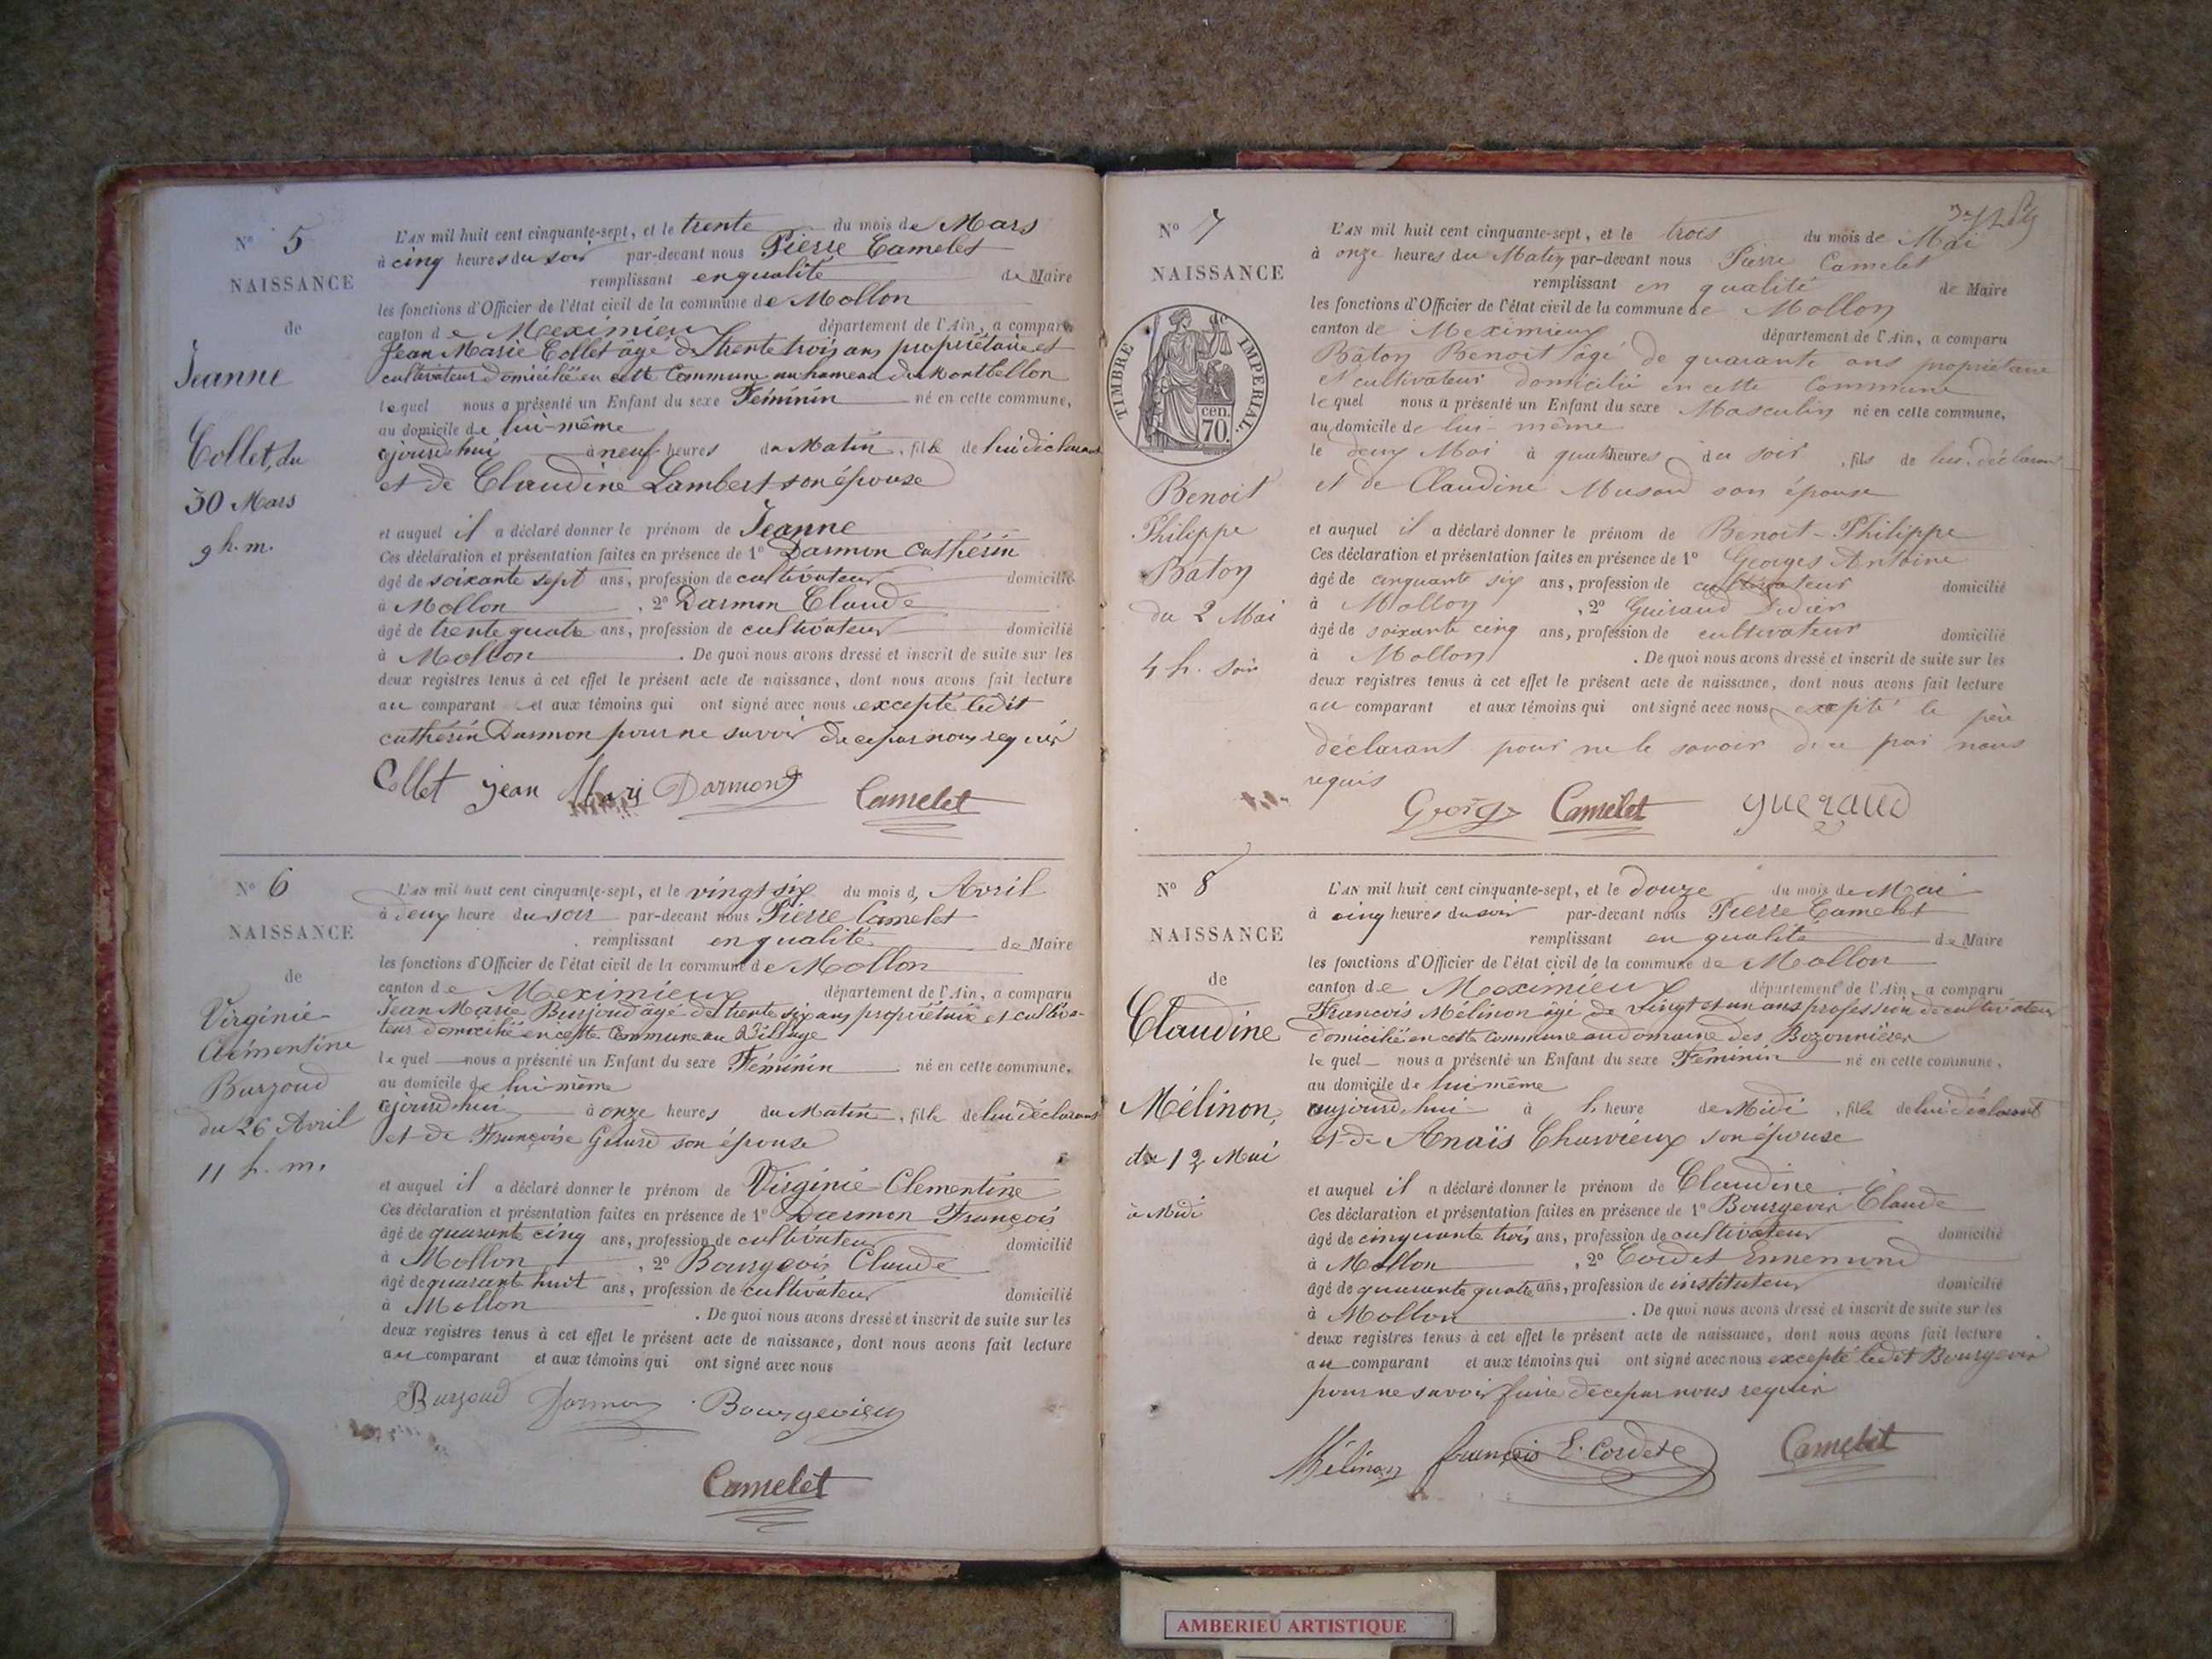 N° 5
NAISSANCE
de
Jeanne
Collet, du
30 Mars
9 h. m.
L'AN mil huit cent cinquante-sept, et le trente du mois de Mars
à cinq heures du soir par-devant nous Pierre Camelet
remplissant en qualité de Maire
les fonctions d'Officier de l'état civil de la commune de Mollon
canton de Meximieux département de l'Ain, a comparu
Jean Marie Collet âgé de trente trois ans propriétaire et
cultivateur domicilié en cette Commune au hameau de Montbellon
lequel nous a présenté un Enfant du sexe Féminin né en cette commune,
au domicile de lui-même
cejourd'hui à neuf heures du Matin, fille de lui déclarant
et de Claudine Lambert son épouse
et auquel il a déclaré donner le prénom de Jeanne
Ces déclaration et présentation faites en présence de 1° Darmon Cathérin
âgé de soixante sept ans, profession de cultivateur domicilié
à Mollon, 2° Darmon Claude
âgé de trente quatre ans, profession de cultivateur domicilié
à Mollon. De quoi nous avons dressé et inscrit de suite sur les
deux registres tenus à cet effet le présent acte de naissance, dont nous avons fait lecture
au comparant et aux témoins qui ont signé avec nous excepté ledit
cathérin Darmon pour ne savoir de ce par nous requis
Collet jean Mari Darmon Camelet
N° 6
NAISSANCE
de
Virginie
Clémentine
Burjoud
du 26 Avril
11 h. m.
L'AN mil huit cent cinquante-sept, et le vingt six du mois d' Avril
à deux heure du soir par-devant nous Pierre Camelet
remplissant en qualité de Maire
les fonctions d'Officier de l'état civil de la commune de Mollon
canton de Meximieux département de l'Ain, a comparu
Jean Marie Burjoud âgé de trente six ans propriétaire et cultiva-
teur domicilié en cette Commune au Village
lequel nous a présenté un Enfant du sexe Féminin né en cette commune,
au domicile de lui-même
cejourd'hui à onze heures du Matin, fille de lui déclarant
et de Françoise son épouse
et auquel il a déclaré donner le prénom de Virginie Clementine
Ces déclaration et présentation faites en présence de 1° Darmon François
âgé de quarante cinq ans, profession de cultivateur domicilié
à Mollon, 2° Bourgeois Claude
âgé de quarante huit ans, profession de cultivateur domicilié
à Mollon. De quoi nous avons dressé et inscrit de suite sur les
deux registres tenus à cet effet le présent acte de naissance, dont nous avons fait lecture
au comparant et aux témoins qui ont signé avec nous
Burjoud Darmon
Camelet
N° 7
NAISSANCE
TIMBRE IMPERIAL
70 cen.
Benoit
Philippe
Baton
du 2 Mai
4 h. soir
L'AN mil huit cent cinquante-sept, et le trois du mois de Mai
à onze heures du Matin par-devant nous Pierre Camelet
remplissant en qualité de Maire
les fonctions d'Officier de l'état civil de la commune de Mollon
canton de Meximieux département de l'Ain, a comparu
Bâton Benoit âgé de quarante ans propriétaire
et cultivateur domicilié en cette Commune
lequel nous a présenté un Enfant du sexe Masculin né en cette commune,
au domicile de lui-même
le deux Mai à quatre heures du soir, fils de lui déclarant
et de Claudine son épouse
et auquel il a déclaré donner le prénom de Benoit-Philippe
Ces déclaration et présentation faites en présence de 1° Georges Antoine
âgé de cinquante six ans, profession de cultivateur domicilié
à Mollon, 2° Guéraud Didier
âgé de soixante cinq ans, profession de cultivateur domicilié
à Mollon. De quoi nous avons dressé et inscrit de suite sur les
deux registres tenus à cet effet le présent acte de naissance, dont nous avons fait lecture
au comparant et aux témoins qui ont signé avec nous excepté le père
déclarant pour ne le savoir de ce par nous
requis
George Camelet gueraud
N° 8
NAISSANCE
de
Claudine
Mélinon,
du 12 Mai
à Midi
L'AN mil huit cent cinquante-sept, et le douze du mois de Mai
à cinq heures du soir par-devant nous Pierre Camelet
remplissant en qualité de Maire
les fonctions d'Officier de l'état civil de la commune de Mollon
canton de Meximieux département de l'Ain, a comparu
François Mélinon âgé de vingt et un ans profession de cultivateur
domicilié en cette Commune au domaine des Bozonnières
lequel nous a présenté un Enfant du sexe Féminin né en cette commune,
au domicile de lui même
aujourd'hui à heure de Midi, fille de lui déclarant
et de Anaïs Charvieux son épouse
et auquel il a déclaré donner le prénom de Claudine
Ces déclaration et présentation faites en présence de 1° Bourgevin Claude
âgé de cinquante trois ans, profession de cultivateur domicilié
à Mollon, 2° Cordet Ennemond
âgé de quarante quatre ans, profession de instituteur domicilié
à Mollon. De quoi nous avons dressé et inscrit de suite sur les
deux registres tenus à cet effet le présent acte de naissance, dont nous avons fait lecture
au comparant et aux témoins qui ont signé avec nous excepté ledit Bourgevin
pour ne savoir faire de ce par nous requis
Mélinon françois E. Cordet Camelet
AMBERIEU ARTISTIQUE